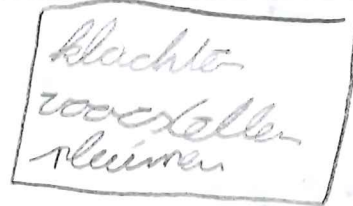 klachten
voorstellen
pluimen